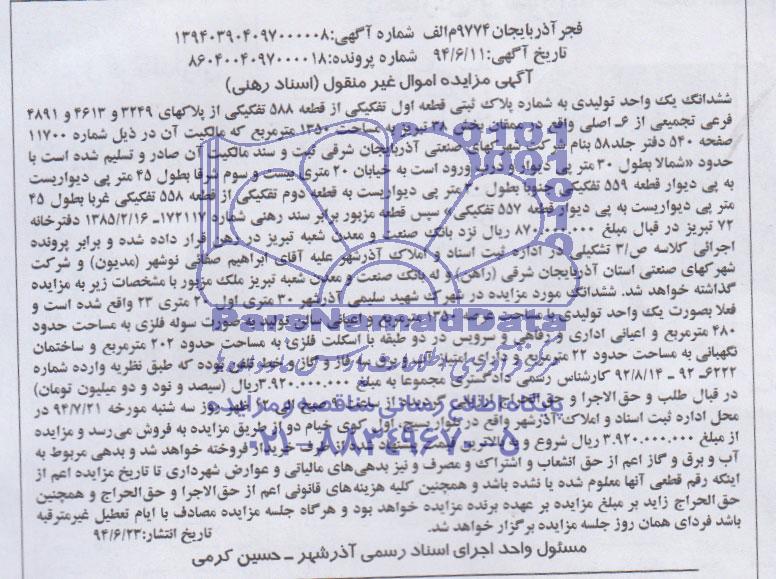 فجر آذربایجان ۹۷۷۴م الف شماره آگهی: ۱۳۹۴۰۳۹۰۴۰۹۷۰۰۰۰۰۸
تاریخ آگهی: ۹۴/۶/۱۱ شماره پرونده: ۸۶۰۴۰۰۴۰۹۷۰۰۰۰۱۸
آگهی مزایده اموال غیر منقول (اسناد رهنی)
ششدانگ یک واحد تولیدی به شماره پلاک ثبتی قطعه اول تفکیکی از قطعه ۵۸۸ تفکیکی از پلاکهای ۳۲۴۹ و ۴۶۱۳ و ۴۸۹۱
فرعی تجمیعی از ۶ـ اصلی واقع در دهقان بخش ۳۸ تبریز به مساحت ۱۳۵۰ مترمربع که مالکیت آن در ذیل شماره ۱۱۷۰۰
صفحه ۵۴۰ دفتر جلد ۵۸ بنام شرکت شهرکهای صنعتی آذربایجان شرقی ثبت و سند مالکیت آن صادر و تسلیم شده است با
حدود «شمالا بطول ۳۰ متر پی دیوار و درب ورود است به خیابان ۲۰ متری بیست و سوم شرقا بطول ۴۵ متر پی دیواریست
به پی دیوار قطعه ۵۵۹ تفکیکی جنوبا بطول ۳۰ متر پی دیواریست به قطعه دوم تفکیکی از قطعه ۵۵۸ تفکیکی غربا بطول ۴۵
متر پی دیواریست به پی دیوار قطعه ۵۵۷ تفکیکی» سپس قطعه مزبور برابر سند رهنی شماره ۱۷۲۱۱۷ـ ۱۳۸۵/۲/۱۶ دفترخانه
۷۲ تبریز در قبال مبلغ ۸۷۰٫۰۰۰٫۰۰۰ ریال نزد بانک صنعت و معدن شعبه تبریز در رهن قرار داده شده و برابر پرونده
اجرائی کلاسه ص/۳ تشکیلی در اداره ثبت اسناد و املاک آذرشهر علیه آقای ابراهیم صفائی نوشهر (مدیون) و شرکت
شهرکهای صنعتی استان آذربایجان شرقی (راهن) و له بانک صنعت و معدن شعبه تبریز ملک مزبور با مشخصات زیر به مزایده
گذاشته خواهد شد. ششدانگ مورد مزایده در شهرک شهید سلیمی آذرشهر ۳۰ متری اول ۲۰ متری ۲۳ واقع شده است و
فعلا بصورت یک واحد تولیدی با مساحت عرصه ۱۳۵۰ مترمربع و اعیانی سالن تولید به صورت سوله فلزی به مساحت حدود
۴۸۰ مترمربع و اعیانی اداری و رفاهی و سرویس در دو طبقه با اسکلت فلزی به مساحت حدود ۲۰۲ مترمربع و ساختمان
نگهبانی به مساحت حدود ۲۲ مترمربع و دارای امتیاز آب و برق سه فاز و گاز و خط تلفن بوده که طبق نظریه وارده شماره
۶۲۲۲ـ ۹۲ ـ ۹۲/۸/۱۴ کارشناس رسمی دادگستری مجموعا به مبلغ ۳٫۹۲۰٫۰۰۰٫۰۰۰ریال (سیصد و نود و دو میلیون تومان)
در قبال طلب و حق‌الاجرا و حق‌الحراج ارزیابی گردیده از ساعت ۹ صبح الی ۱۲ ظهر روز سه شنبه مورخه ۹۴/۷/۲۱ در
محل اداره ثبت اسناد و املاک آذرشهر واقع در بلوار بسیج اول کوی خیام دو از طریق مزایده به فروش می‌رسد و مزایده
از مبلغ ۳٫۹۲۰٫۰۰۰٫۰۰۰ ریال شروع و به بالاترین قیمت پیشنهادی از طرف خریدار فروخته خواهد شد و بدهی مربوط به
آب و برق و گاز اعم از حق انشعاب و اشتراک و مصرف و نیز بدهی‌های مالیاتی و عوارض شهرداری تا تاریخ مزایده اعم از
اینکه رقم قطعی آنها معلوم شده یا نشده باشد و همچنین کلیه هزینه‌های قانونی اعم از حق‌الاجرا و حق‌الحراج و همچنین
حق‌الحراج زاید بر مبلغ مزایده بر عهده برنده مزایده خواهد بود و هرگاه جلسه مزایده مصادف با ایام تعطیل غیرمترقبه
باشد فردای همان روز جلسه مزایده برگزار خواهد شد. تاریخ انتشار: ۹۴/۶/۲۳
مسئول واحد اجرای اسناد رسمی آذرشهر ــ حسین کرمی
ParsNamadData
پایگاه اطلاع رسانی مناقصه و مزایده
۰۲۱-۸۸۳۴۹۶۷۰-۵